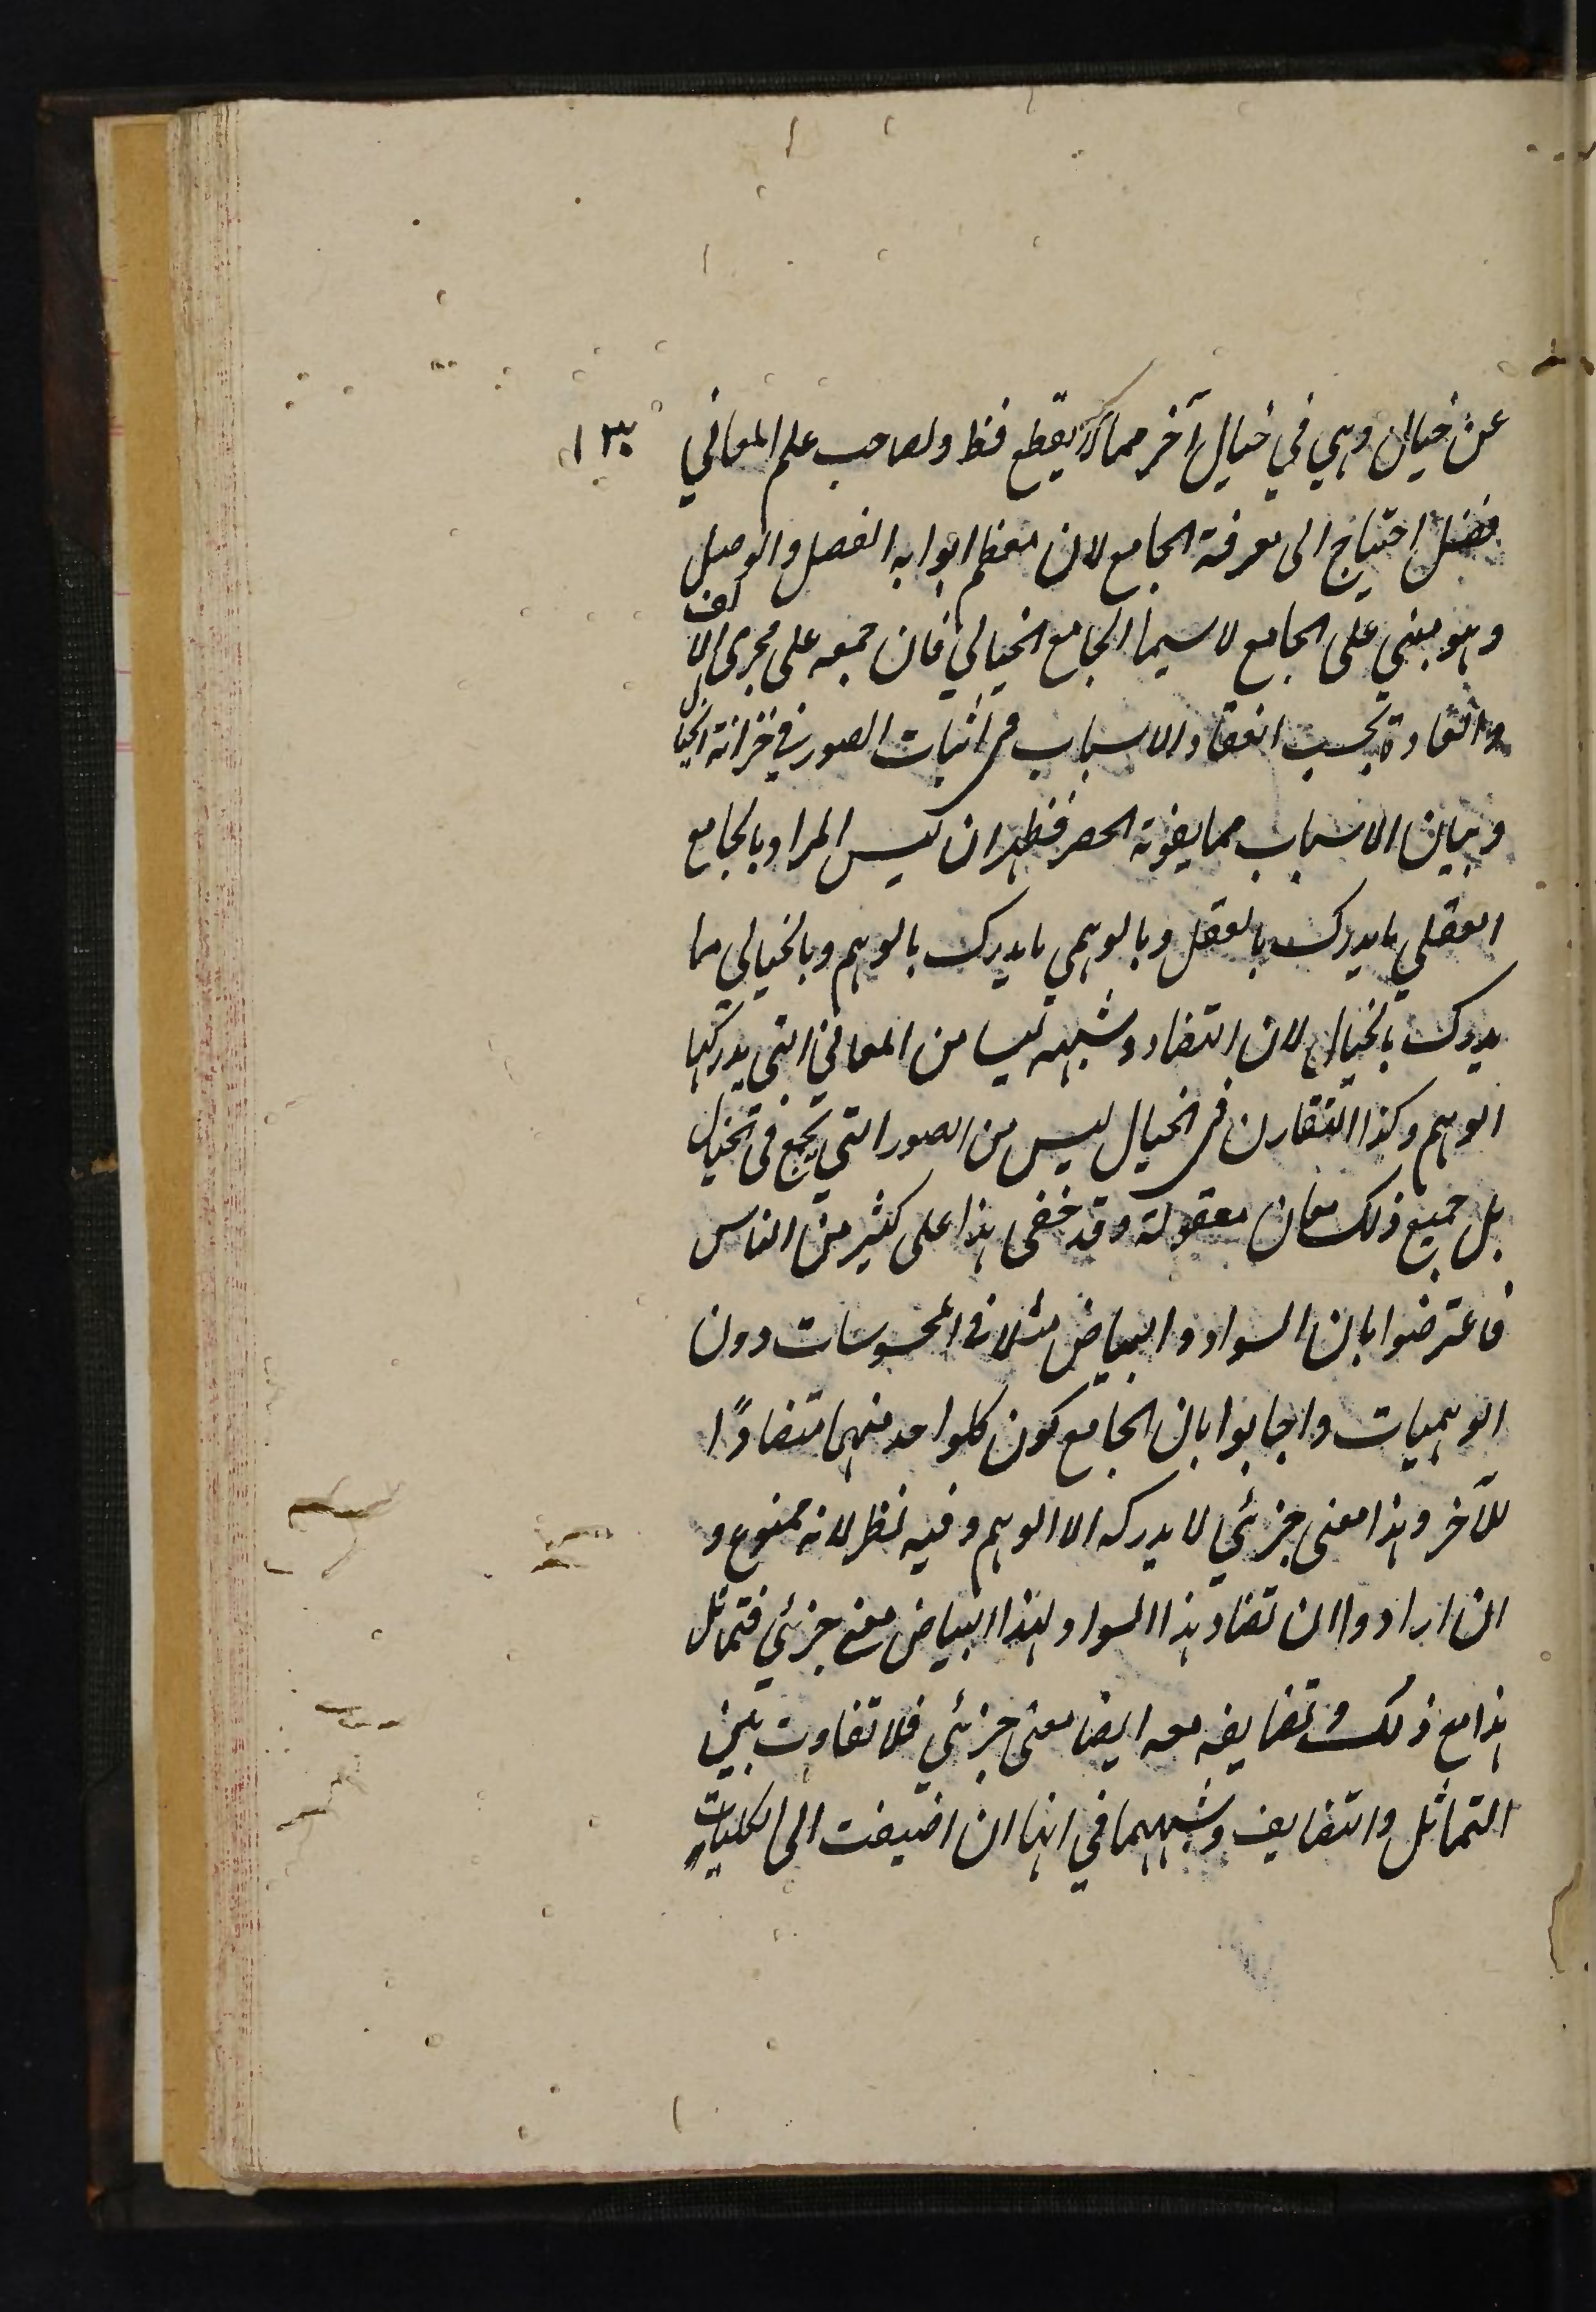 عن خيال وهي في خيال آخر مما لا يقطع قط ولصاحب علم المعاني
١٣٠
فضل احتياج الى معرفة الجامع لان معظم ابوابه الفصل والوصل
وهو مبني على الجامع لا سيما الجامع الخيالي فان جمعه على مجرى الالف
والعادة بحسب انعقاد الاسباب في اثبات الصور في خزانة الخيال
وبيان الاسباب مما يفوته الحصر فظهر ان ليس المراد بالجامع
العقلي ما يدرك بالعقل وبالوهمي ما يدرك بالوهم وبالخيالي ما
يدرك بالخيال لان التضاد وشبهه ليسا من المعاني التي يدركها
الوهم وكذا التقارن في الخيال ليس من الصور التي تجمع في الخيال
بل جميع ذلك معان معقولة وقد خفى هذا على كثير من الناس
فاعترضوا بان السواد والبياض مثلا من المحسوسات دون
الوهميات واجابوا بان الجامع كون كل واحد منهما متضادًا
للآخر وهذا معنى جزئي لا يدركه الا الوهم وفيه نظر لانه ممنوع و
ان ارادوا ان تضاد هذا السواد لهذا البياض معنى جزئي فتماثل
هذا مع ذلك وتضايفه معه ايضا معنى جزئي فلا تفاوت بين
التماثل والتضايف وشبههما في انها ان اضيفت الى الكليات